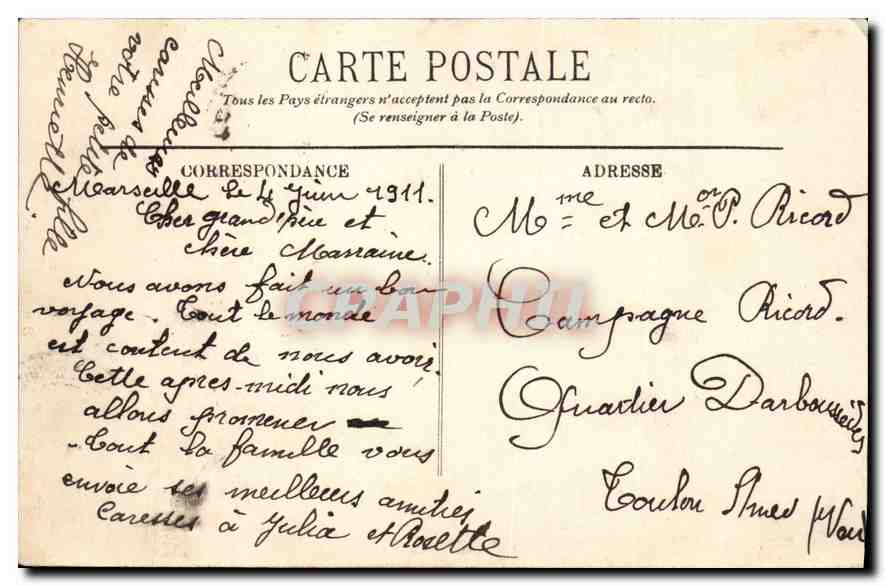 CARTE POSTALE
Tous les Pays étrangers n'acceptent pas la Correspondance au recto.
(Se renseigner à la Poste).
CORRESPONDANCE
Marseille le 4 Juin 1911.
Cher grand'père et
chère Marraine.
Nous avons fait un bon
voyage. Tout le monde
est content de nous avoir.
Cette après-midi nous
allons promener
Tout la famille vous
envoie ses meilleurs amitiés
Caresses à Julia et Rosette
Meilleures
caresses de
votre petite
fille
Henriette.
ADRESSE
Mme et Mor P. Ricord
Campagne Ricord.
Quartier Darboussèdes
Toulon (Var)
CPAPHIL